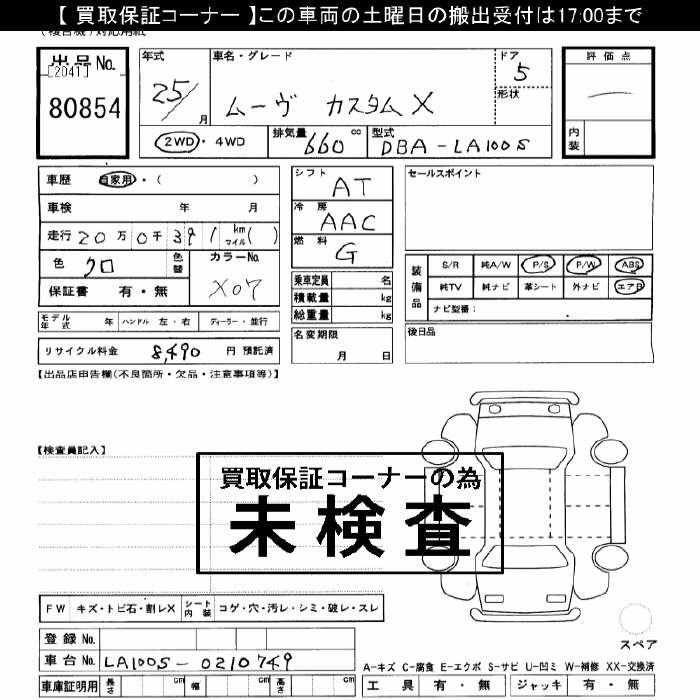 【 買取保証コーナー 】この車両の土曜日の搬出受付は17:00まで
出品No.
[2041]
80854
年式
25/
月
車名・グレード
ムーヴ カスタムX
ドア
5
形状
2WD・4WD
排気量
660
cc
型式
DBA-LA100S
評価点
内装
車歴 自家用・( )
車検 年 月
走行 20万0千391 km マイル( )
色 クロ
色替
カラーNo.
X07
保証書 有・無
シフト AT
冷房 AAC
燃料 G
乗車定員 名
積載量 kg
総重量 kg
名変期限
月 日
セールスポイント
装備品
S/R 純A/W P/S P/W ABS
純TV 純ナビ 革シート 外ナビ エアB
ナビ型番：
後日品
モデル年式 年 ハンドル 左・右 ディーラー・並行
リサイクル料金 8,490 円 預託済
【出品店申告欄(不良箇所・欠品・注意事項等)】
【検査員記入】
買取保証コーナーの為
未検査
FW キズ・トビ石・割レX シート内装 コゲ・穴・汚レ・シミ・破レ・スレ
登録No.
車台No. LA100S-0210749
車庫証明用 長さ cm 幅 cm 高さ cm
スペア
A-キズ C-腐食 E-エクボ S-サビ U-凹ミ W-補修 XX-交換済
工具 有・無 ジャッキ 有・無